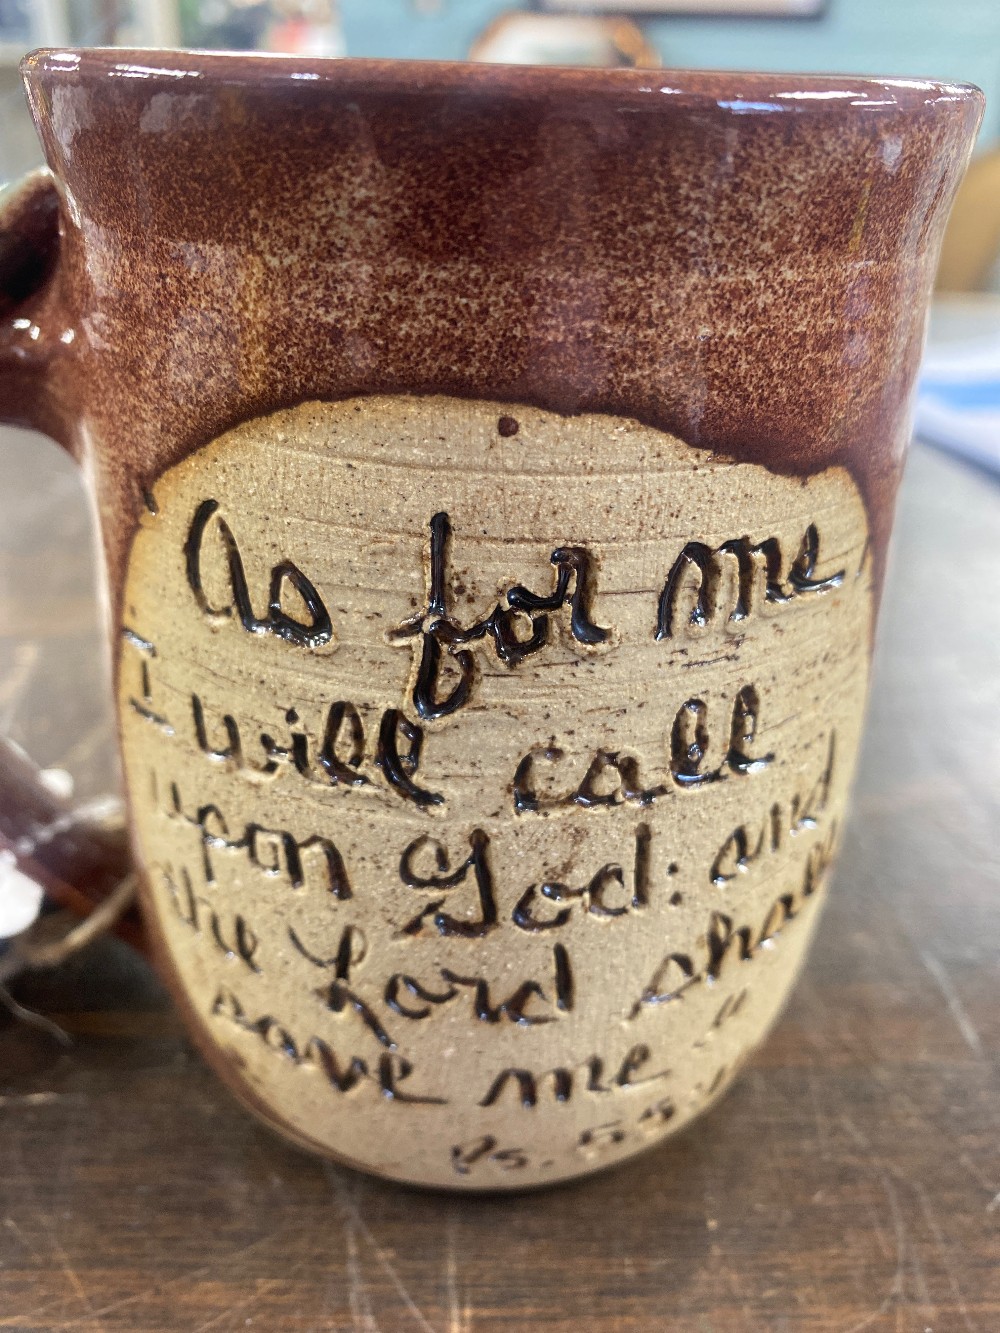 "As for me,
I will call
upon God: and
the Lord shall
save me."
Ps. 55: